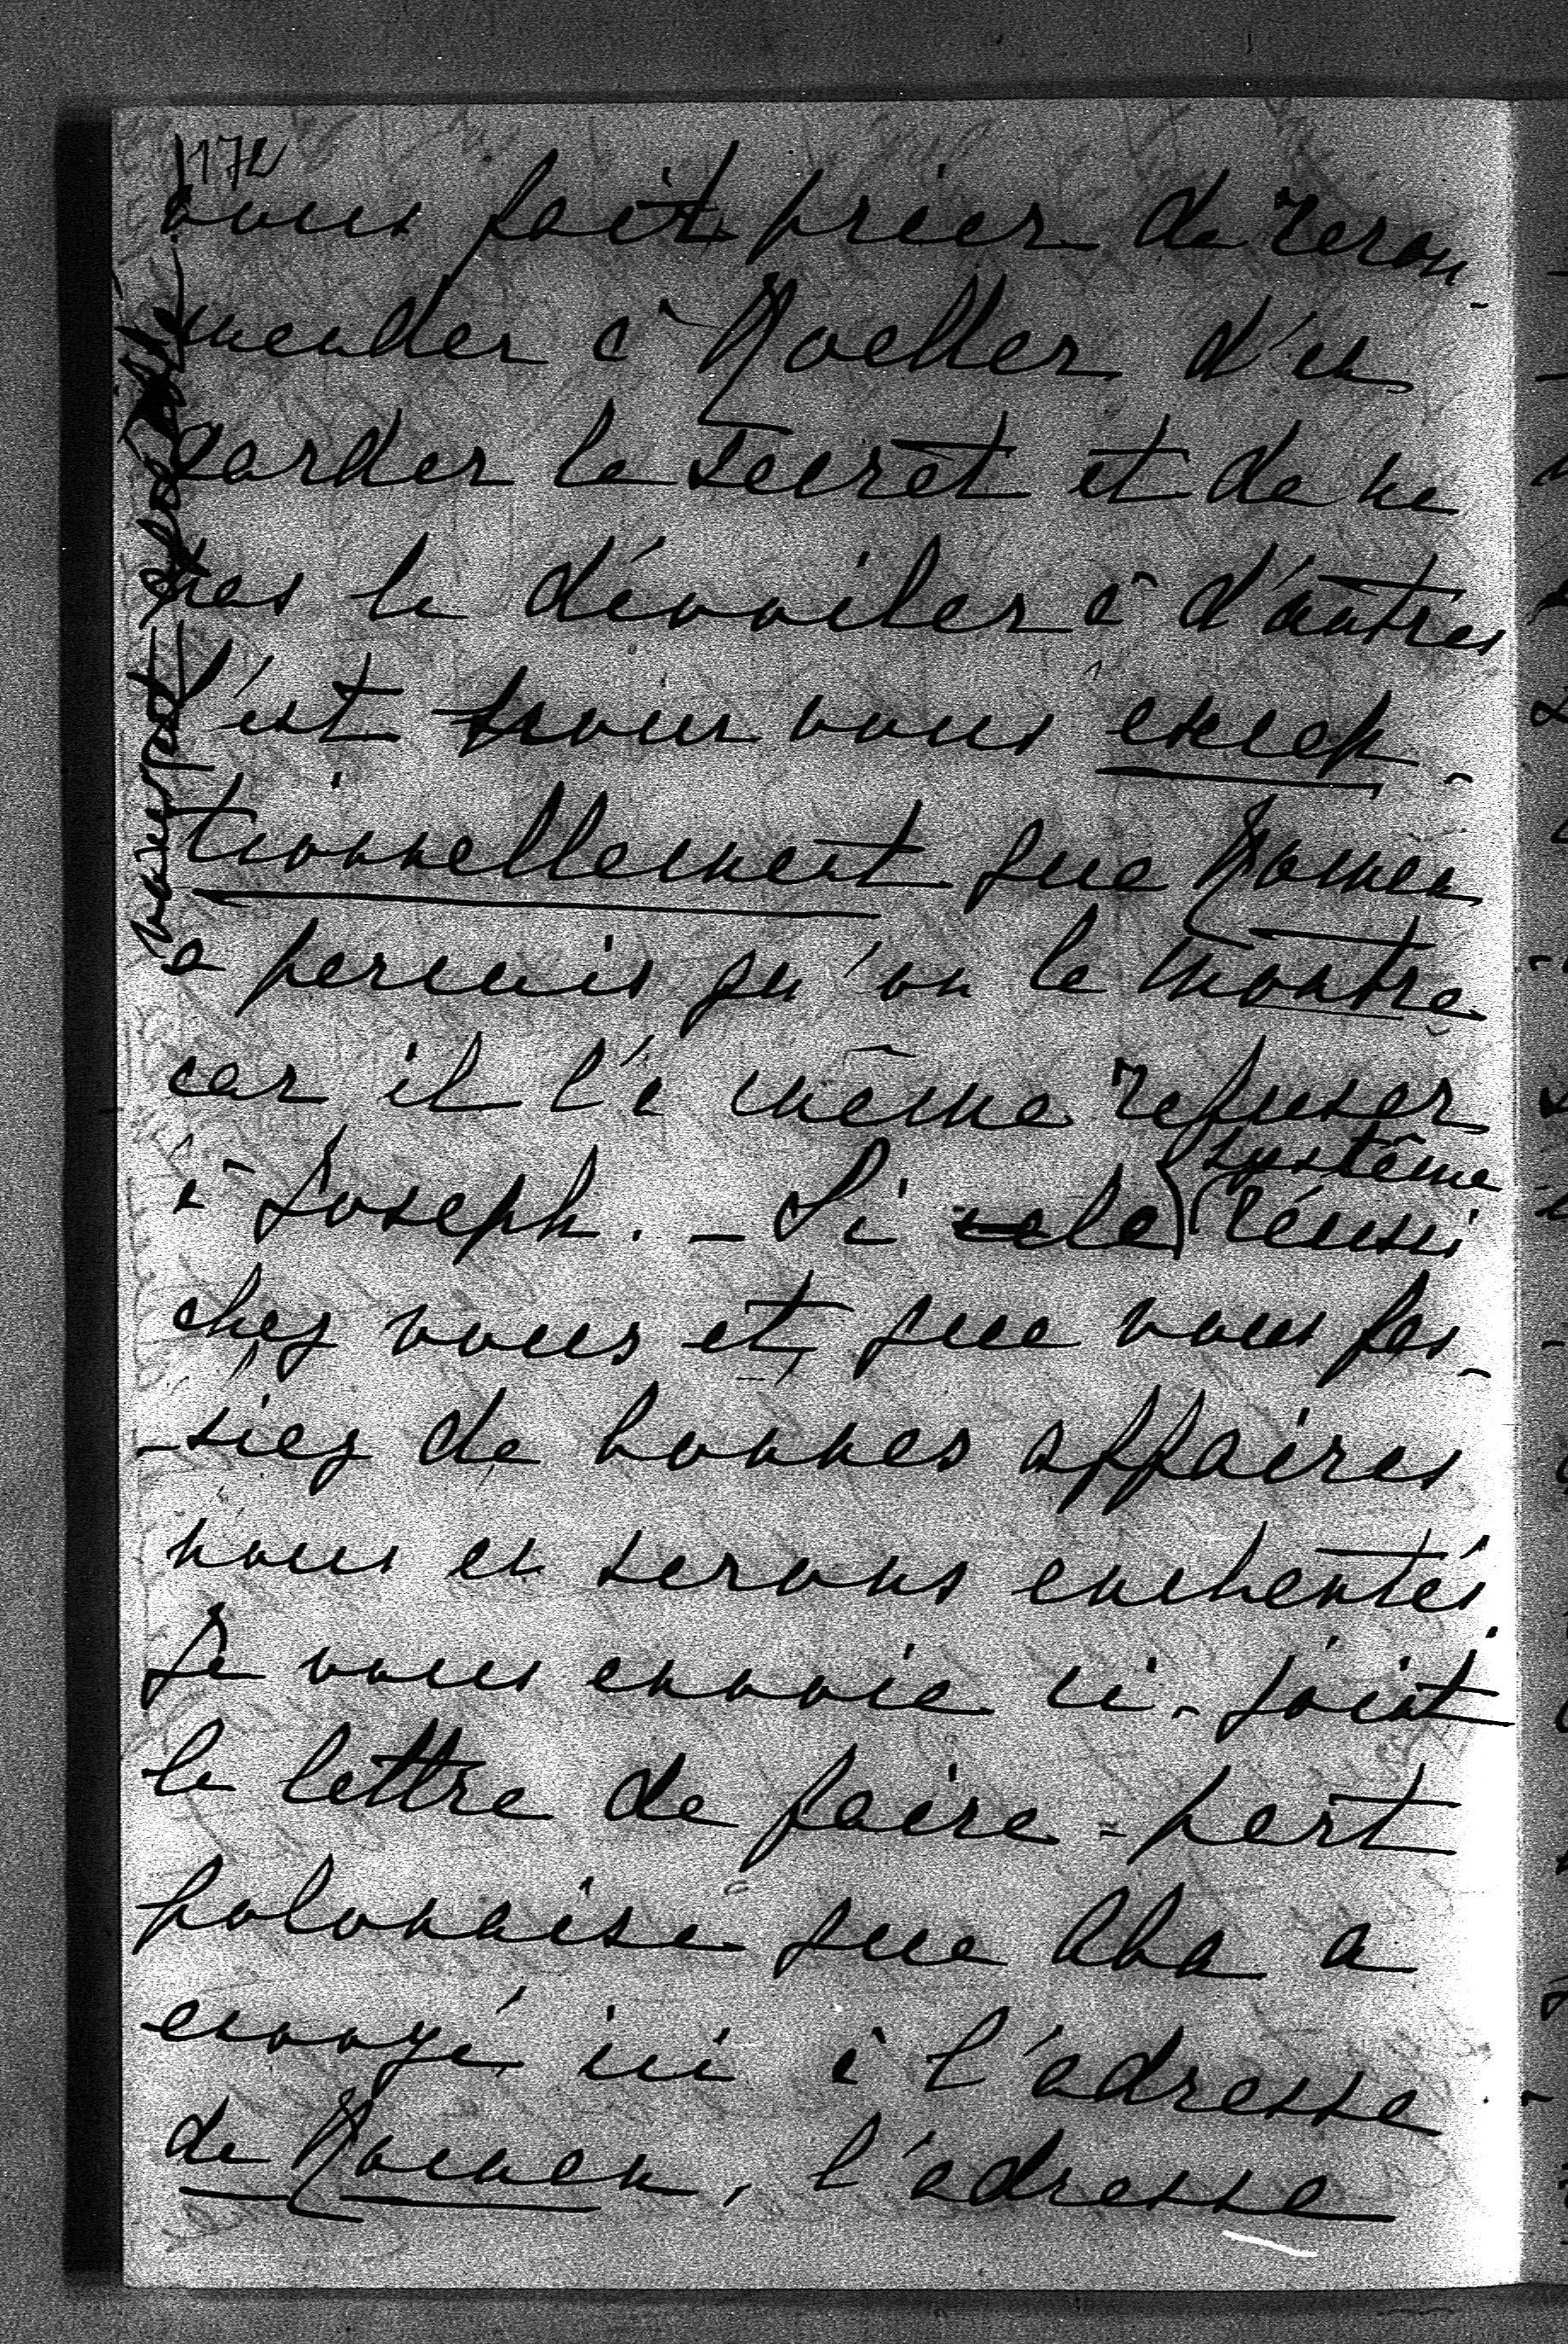 172
vous fait prier de recom-
mender à Roeller d'en
garder le secret et de ne
pas le dévoiler à d'autres
C'est pour vous excep-
tionnellement que Romen
a permis qu'on le montre
car il l'a même refuser
à Joseph. - Si cela système réussi
chez vous et que vous fas-
-siez de bonnes affaires
nous en serons enchentés.
Je vous envoie ci-joint
la lettre de faire-part
polonaise que Aba a
envoyé ici à l'adresse
de Romen, l'adresse